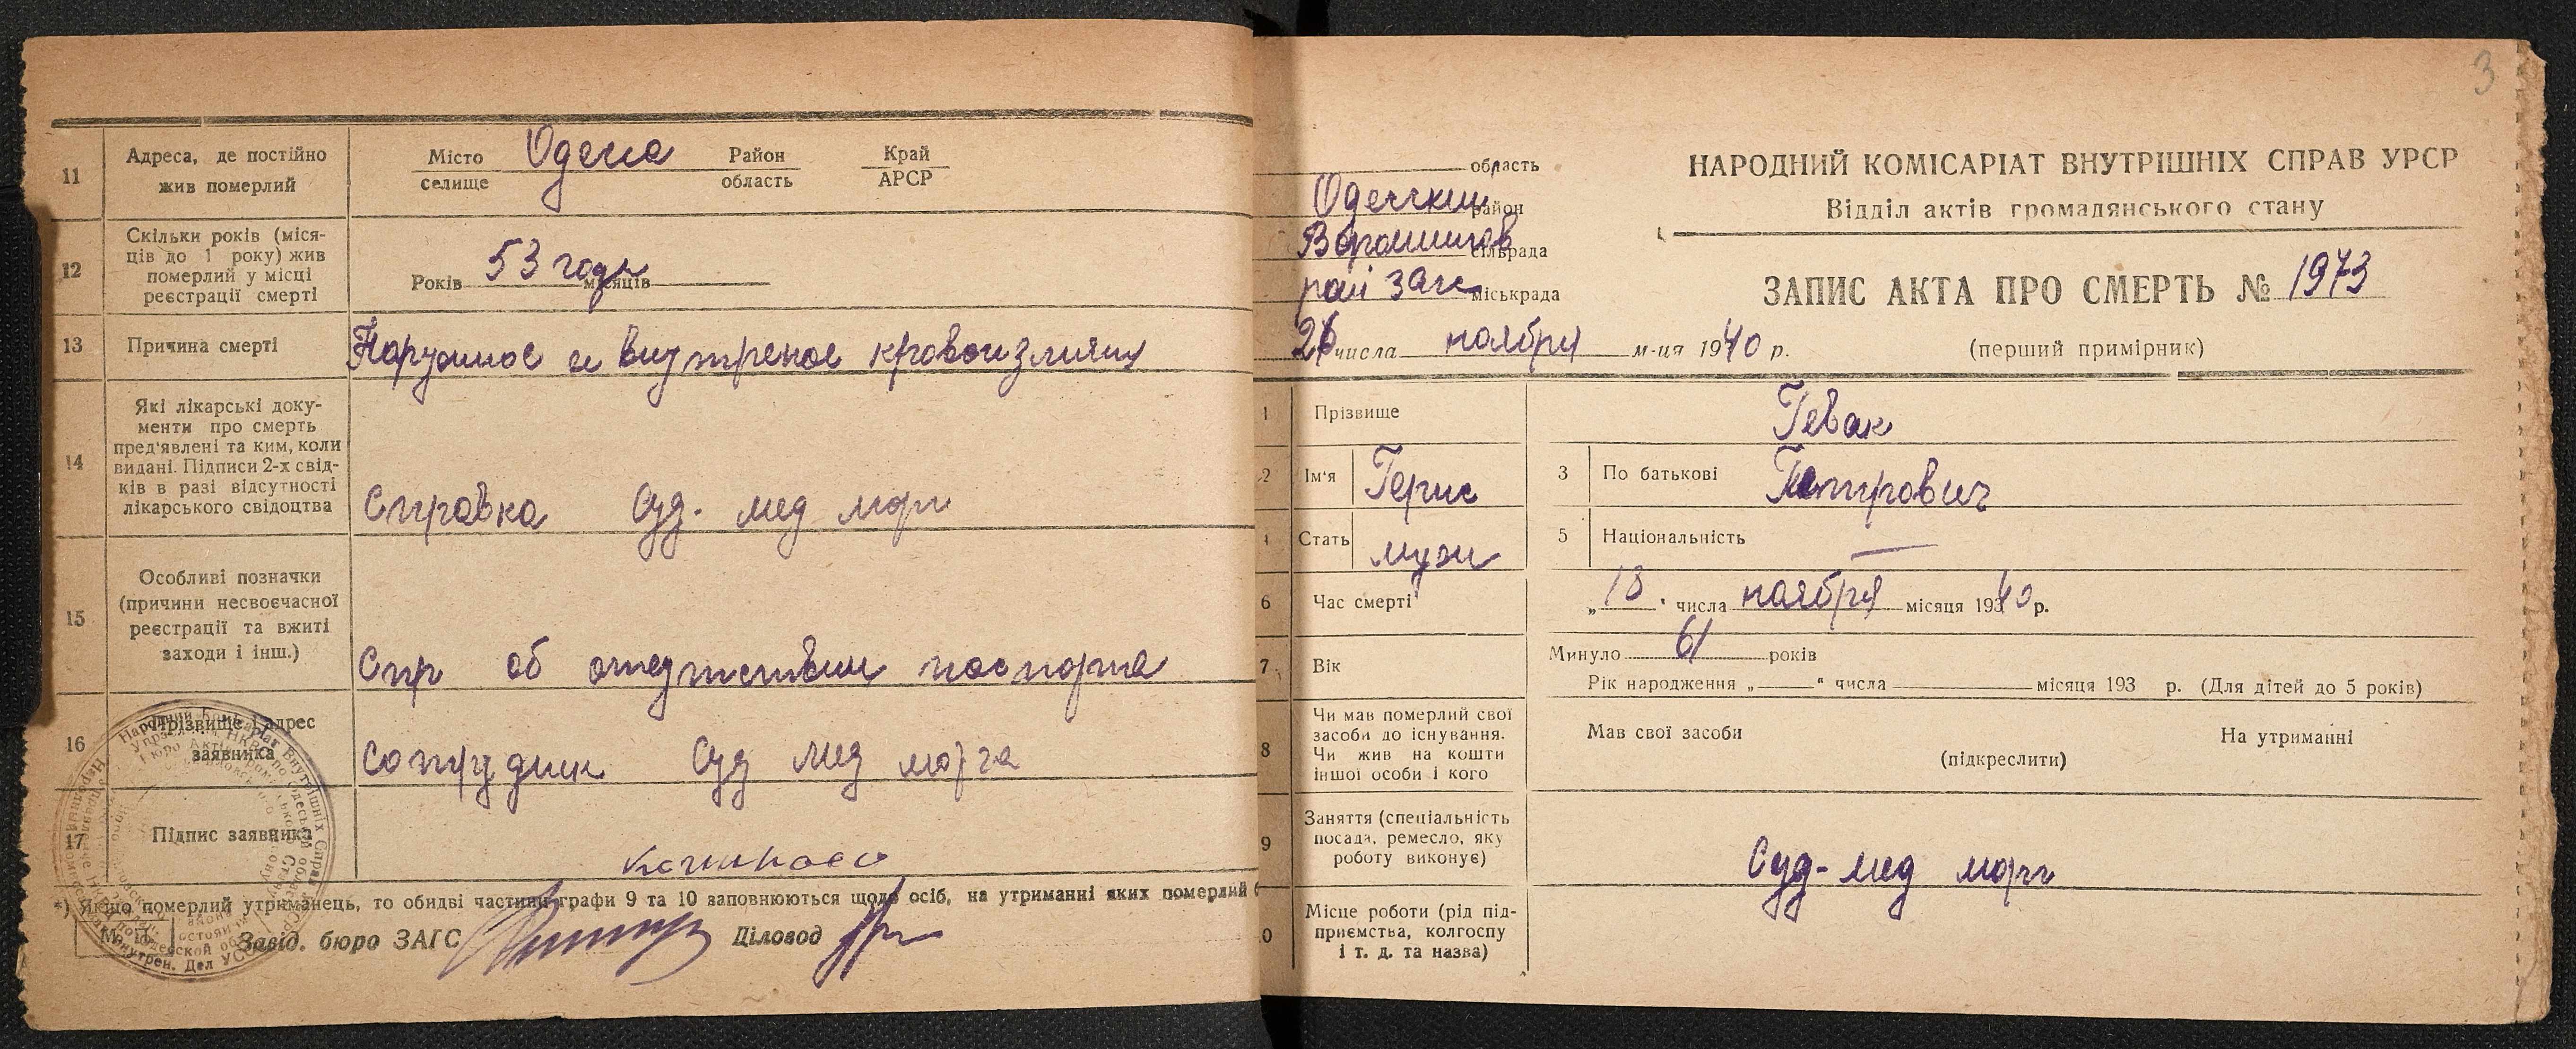 11 Адреса, де постійно жив померлий
Місто селище Одесса Район область Край АРСР
12 Скільки років (міся-
ців до 1 року) жив
померлий у місці
реєстрації смерті
Років 53 года місяців
13 Причина смерті Наружное и внутреное кровоизлияни
14 Які лікарські доку-
менти про смерть
пред'явлені та ким, коли
видані. Підписи 2-х свід-
ків в разі відсутності
лікарського свідоцтва
Справка Суд. мед морг
15 Особливі позначки
(причини несвоєчасної
реєстрації та вжиті
заходи і інш.)
Спр об отсутствии паспорта
16 Прізвище і адрес
заявника
Сотрудник Суд мед морга
17 Підпис заявника
*) Якщо померлий утриманець, то обидві частини графи 9 та 10 заповнюються щодо осіб, на утриманні яких померлий
М. П. Завід. бюро ЗАГС Діловод
3
область
Одесский район
Ворошилов сільрада
рай загс міськрада
26 числа ноября м-ця 1940 р.
НАРОДНИЙ КОМІСАРІАТ ВНУТРІШНІХ СПРАВ УРСР
Відділ актів громадянського стану
ЗАПИС АКТА ПРО СМЕРТЬ № 1973
(перший примірник)
1 Прізвище Гевак
2 Ім'я 3 По батькові Петрович
4 Стать муж 5 Національність —
6 Час смерті „18“ числа ноября місяця 1940 р.
7 Вік Минуло 61 років
Рік народження „—“ числа місяця 193 р. (Для дітей до 5 років)
8 Чи мав померлий свої
засоби до існування.
Чи жив на кошти
іншої особи і кого
Мав свої засоби На утриманні
(підкреслити)
9 Заняття (спеціальність
посада, ремесло, яку
роботу виконує)
Суд-мед морг
0 Місце роботи (рід під-
приємства, колгоспу
і т. д. та назва)